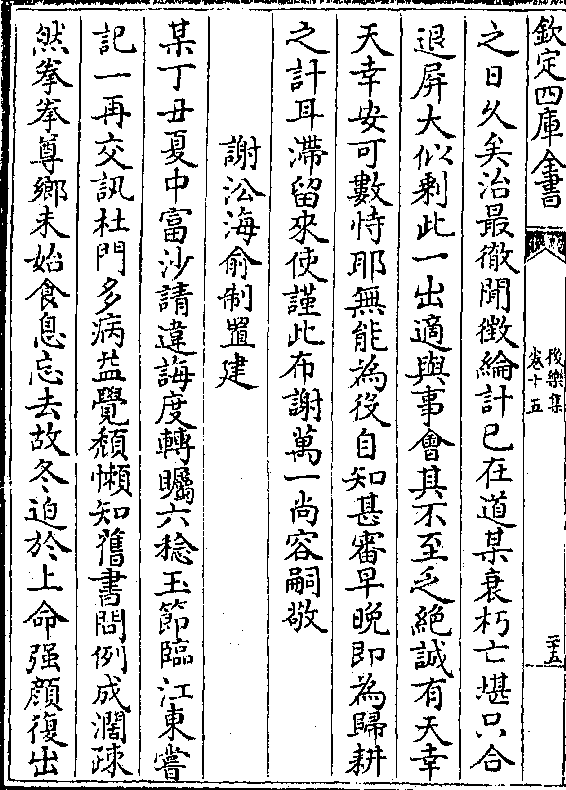 欽定四庫全書
後樂集
卷十五
二十五
之日久矣治最徹聞徴綸計已在道某衰朽亡堪只合
退屏大似剰此一出適與事會其不至乏絶誠有天幸
天幸安可數恃耶無能為役自知甚審早晚即為歸耕
之計耳滯留來使謹此布謝萬一尚容嗣敬
謝㳂海俞制置建
某丁丑夏中富沙請違誨度轉矚六稔玉節臨江東嘗
記一再交訊杜門多病益覺頽懶知舊書問例成濶疎
然拳拳尊鄉未始食息忘去故冬迫於上命强顔復出